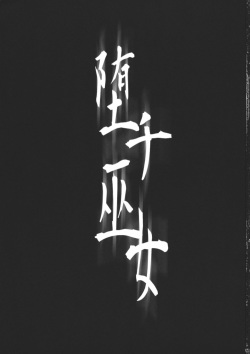 堕チ巫女